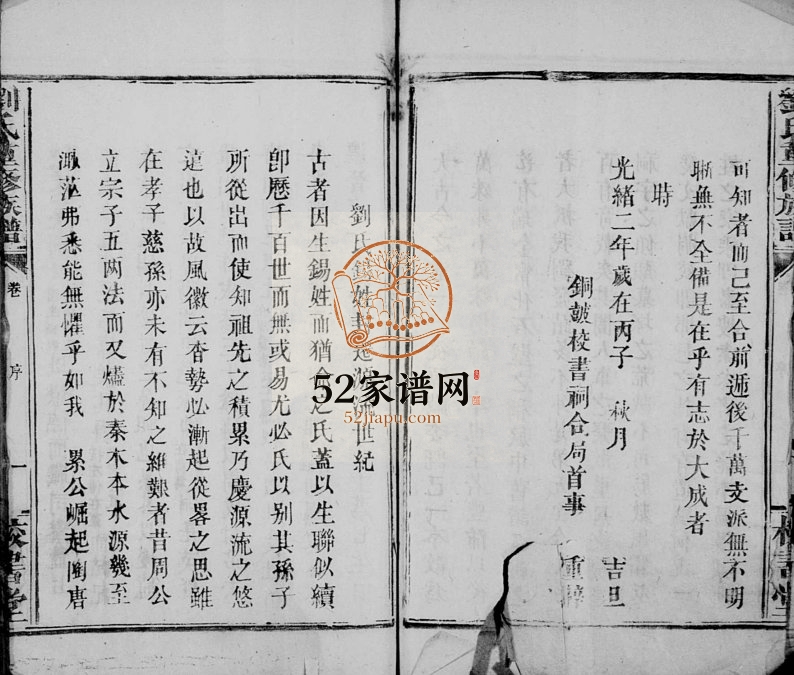 可知者而已至合前遞後千萬支派無不明
晰無不全備是在乎有志於大成者
時
光緒二年歲在丙子 秋月 吉旦
銅皷校書祠合局首事 重
劉氏錫姓 世紀
古者因生錫姓而猶合之氏蓋以生聯似續
即歷千百世而無或易尤必氏以别其孫子
所從出而使知祖先之積累乃慶源流之悠
遠也以故風徽云杳勢必漸起從畧之思雖
在孝子慈孫亦未有不知之維艱者昔周公
立宗子五兩法而又燼於秦木本水源幾至
茫弗悉能無懼乎如我 累公崛起閩唐
劉氏重修族譜
卷
序
一
校書堂
劉氏重修族譜
校書堂
52家谱网
52jiapu.com